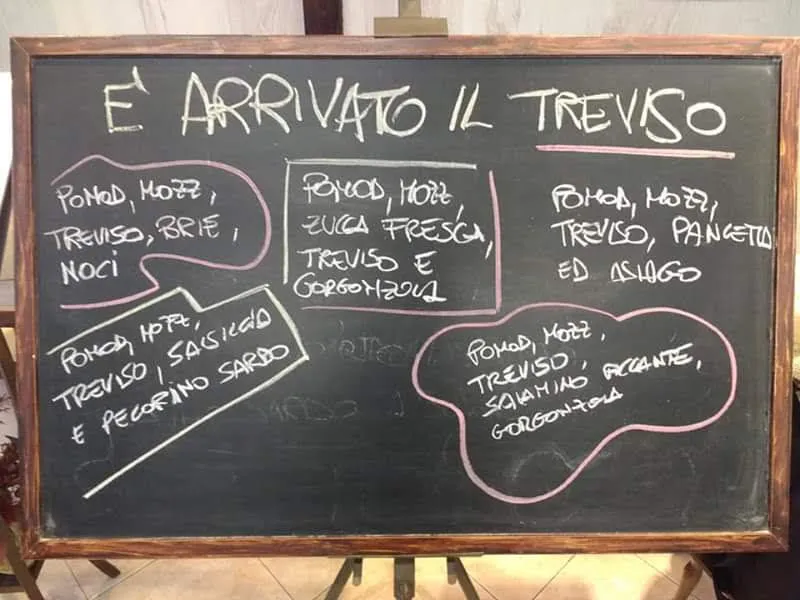 E' ARRIVATO IL TREVISO
POMOD, MOZZ,
TREVISO, BRIE,
NOCI
POMOD, MOZZ,
ZUCCA FRESCA,
TREVISO E
GORGONZOLA
POMOD, MOZZ,
TREVISO, PANCETTA
ED ASIAGO
POMOD, MOZZ,
TREVISO, SALSICCIA
E PECORINO SARDO
POMOD, MOZZ,
TREVISO,
SALAMINO PICCANTE,
GORGONZOLA